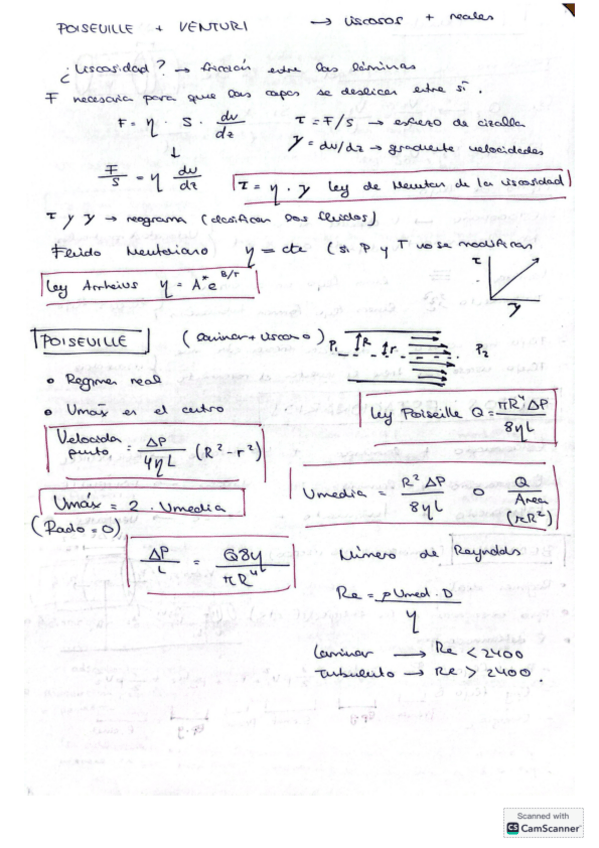 POISEUILLE + VENTURI → viscosos + reales
¿Viscosidad? → fricción entre las láminas
F necesaria para que las capas se deslicen entre sí.
F = η · S · dv/dz τ = F/S → esfuerzo de cizalla
γ = dv/dz → gradiente velocidades
F/S = η dv/dz τ = η · γ Ley de Newton de la viscosidad
τ y γ → reograma (clasifican los fluidos)
Fluido Newtoniano η = cte (si P y T no se modifican
τ
Ley Arrheius η = A* e^B/T
γ
POISEUILLE (laminar + viscoso) P1 R r P2
• Regimen real
• Vmáx en el centro
Ley Poiseille Q = πR⁴ΔP/8ηL
Velocidad punto = ΔP/4ηL (R² - r²)
Vmedia = R² ΔP/8ηL o Q/Area (πR²)
Vmáx = 2 · Vmedia
(Radio = 0)
ΔP/L = Q8η/πR⁴ Número de Reynolds
Re = ρVmed · D/η
Laminar → Re < 2400
Turbulento → Re > 2400.
Scanned with
CS CamScanner